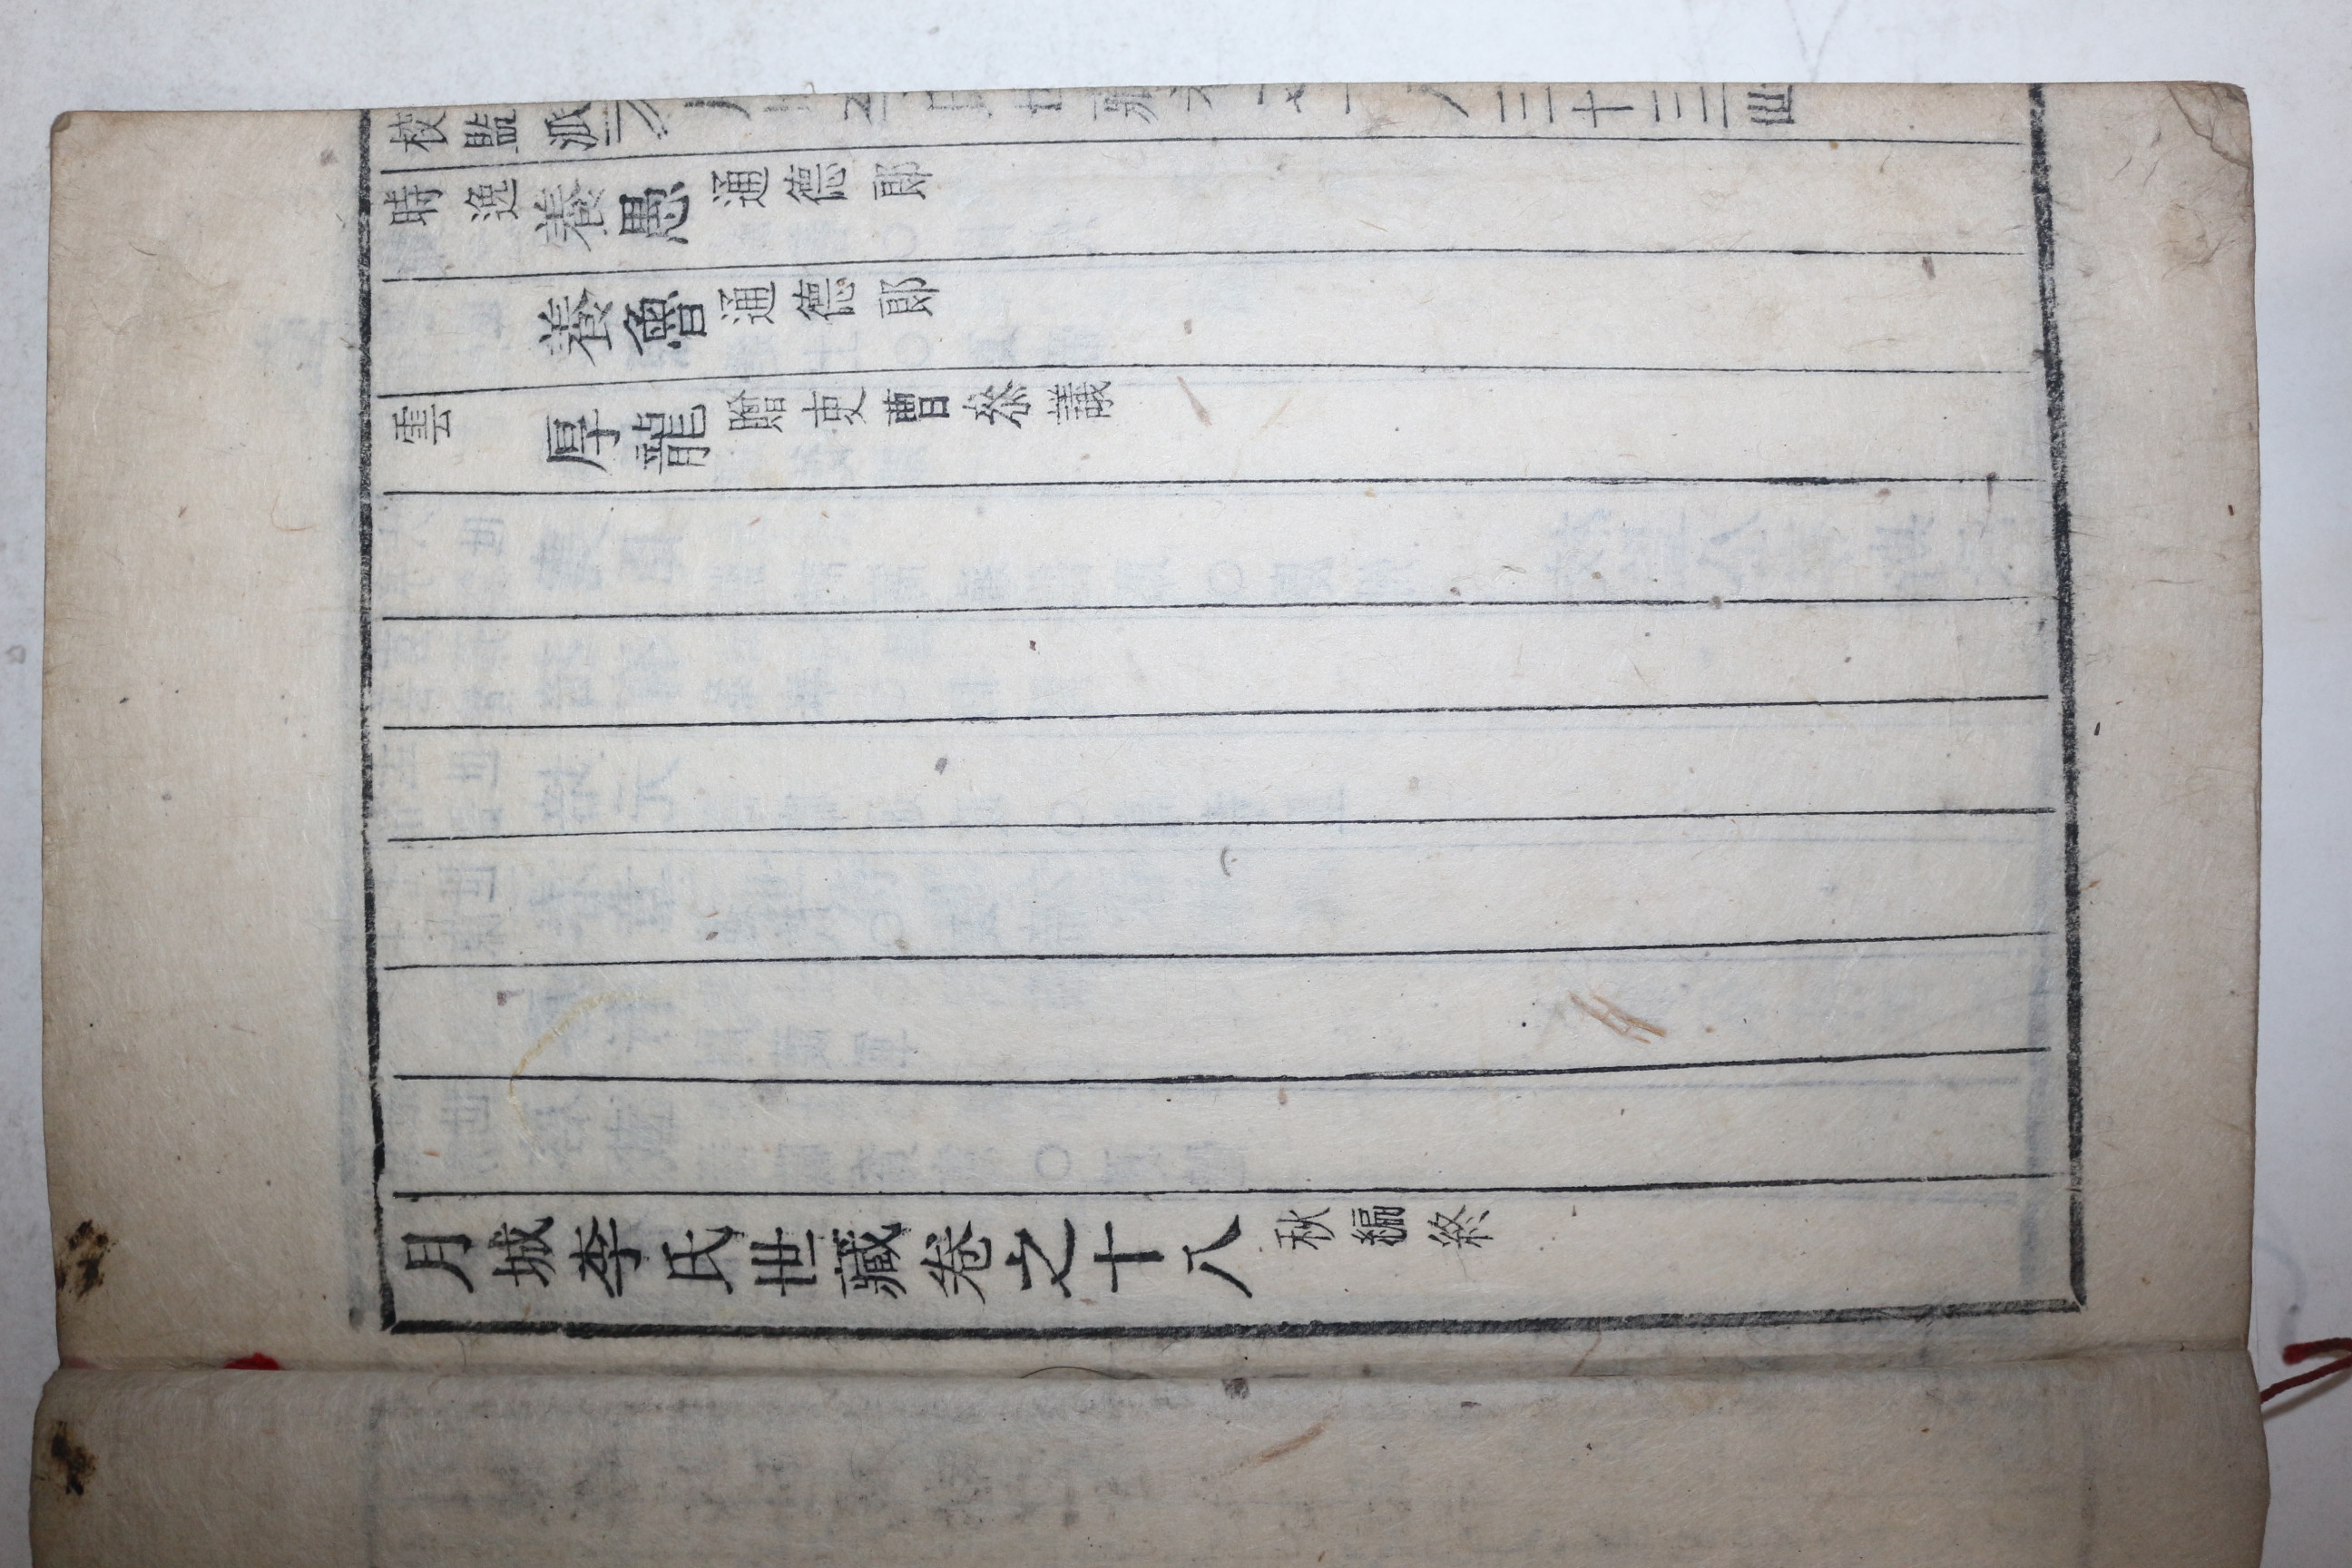 校監派
三十三世
時逸養愚通德郞
養魯通德郞
雲厚龍贈吏曹叅議
月城李氏世藏卷之十八秋編終